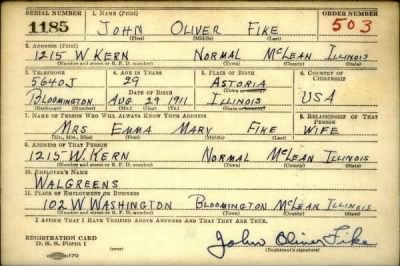 SERIAL NUMBER 1. NAME (Print) ORDER NUMBER
1185 JOHN OLIVER FIKE 503
(First) (Middle) (Last)
2. ADDRESS (Print)
1215 W KERN NORMAL McLEAN ILLINOIS
(Number and street or R. F. D. number) (Town) (County) (State)
3. TELEPHONE 4. AGE IN YEARS 5. PLACE OF BIRTH 6. COUNTRY OF CITIZENSHIP
5640J 29 ASTORIA
DATE OF BIRTH (Town or county)
BLOOMINGTON AUG 29 1911 ILLINOIS USA
(Exchange) (Number) (Mo.) (Day) (Yr.) (State or country)
7. NAME OF PERSON WHO WILL ALWAYS KNOW YOUR ADDRESS 8. RELATIONSHIP OF THAT PERSON
MRS EMMA MARY FIKE WIFE
(Mr., Mrs., Miss) (First) (Middle) (Last)
9. ADDRESS OF THAT PERSON
1215 W. KERN NORMAL McLEAN ILLINOIS
(Number and street or R. F. D. number) (Town) (County) (State)
10. EMPLOYER'S NAME
WALGREENS
11. PLACE OF EMPLOYMENT OR BUSINESS
102 W WASHINGTON BLOOMINGTON McLEAN ILLINOIS
(Number and street or R. F. D. number) (Town) (County) (State)
I AFFIRM THAT I HAVE VERIFIED ABOVE ANSWERS AND THAT THEY ARE TRUE.
REGISTRATION CARD
D. S. S. Form 1 John Oliver Fike
(Registrant's signature)